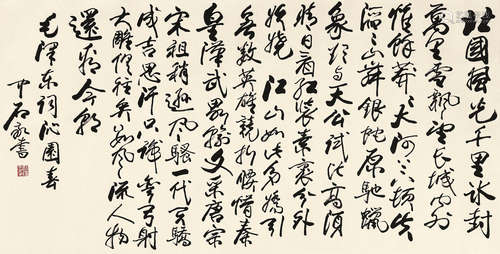 北國風光千里冰封
萬里雪飄望長城内外
惟餘莽〻大河上下頓失
滔〻山舞銀蛇原馳蠟
象欲與天公試比高須
晴日看紅裝素裹分外
妖嬈 江山如此多嬌引
無數英雄競折腰惜秦
皇漢武略輸文采唐宗
宋祖稍遜風騷一代天驕
成吉思汗只識彎弓射
大雕俱往矣數風流人物
還看今朝
毛澤东詞沁園春
中石敬書